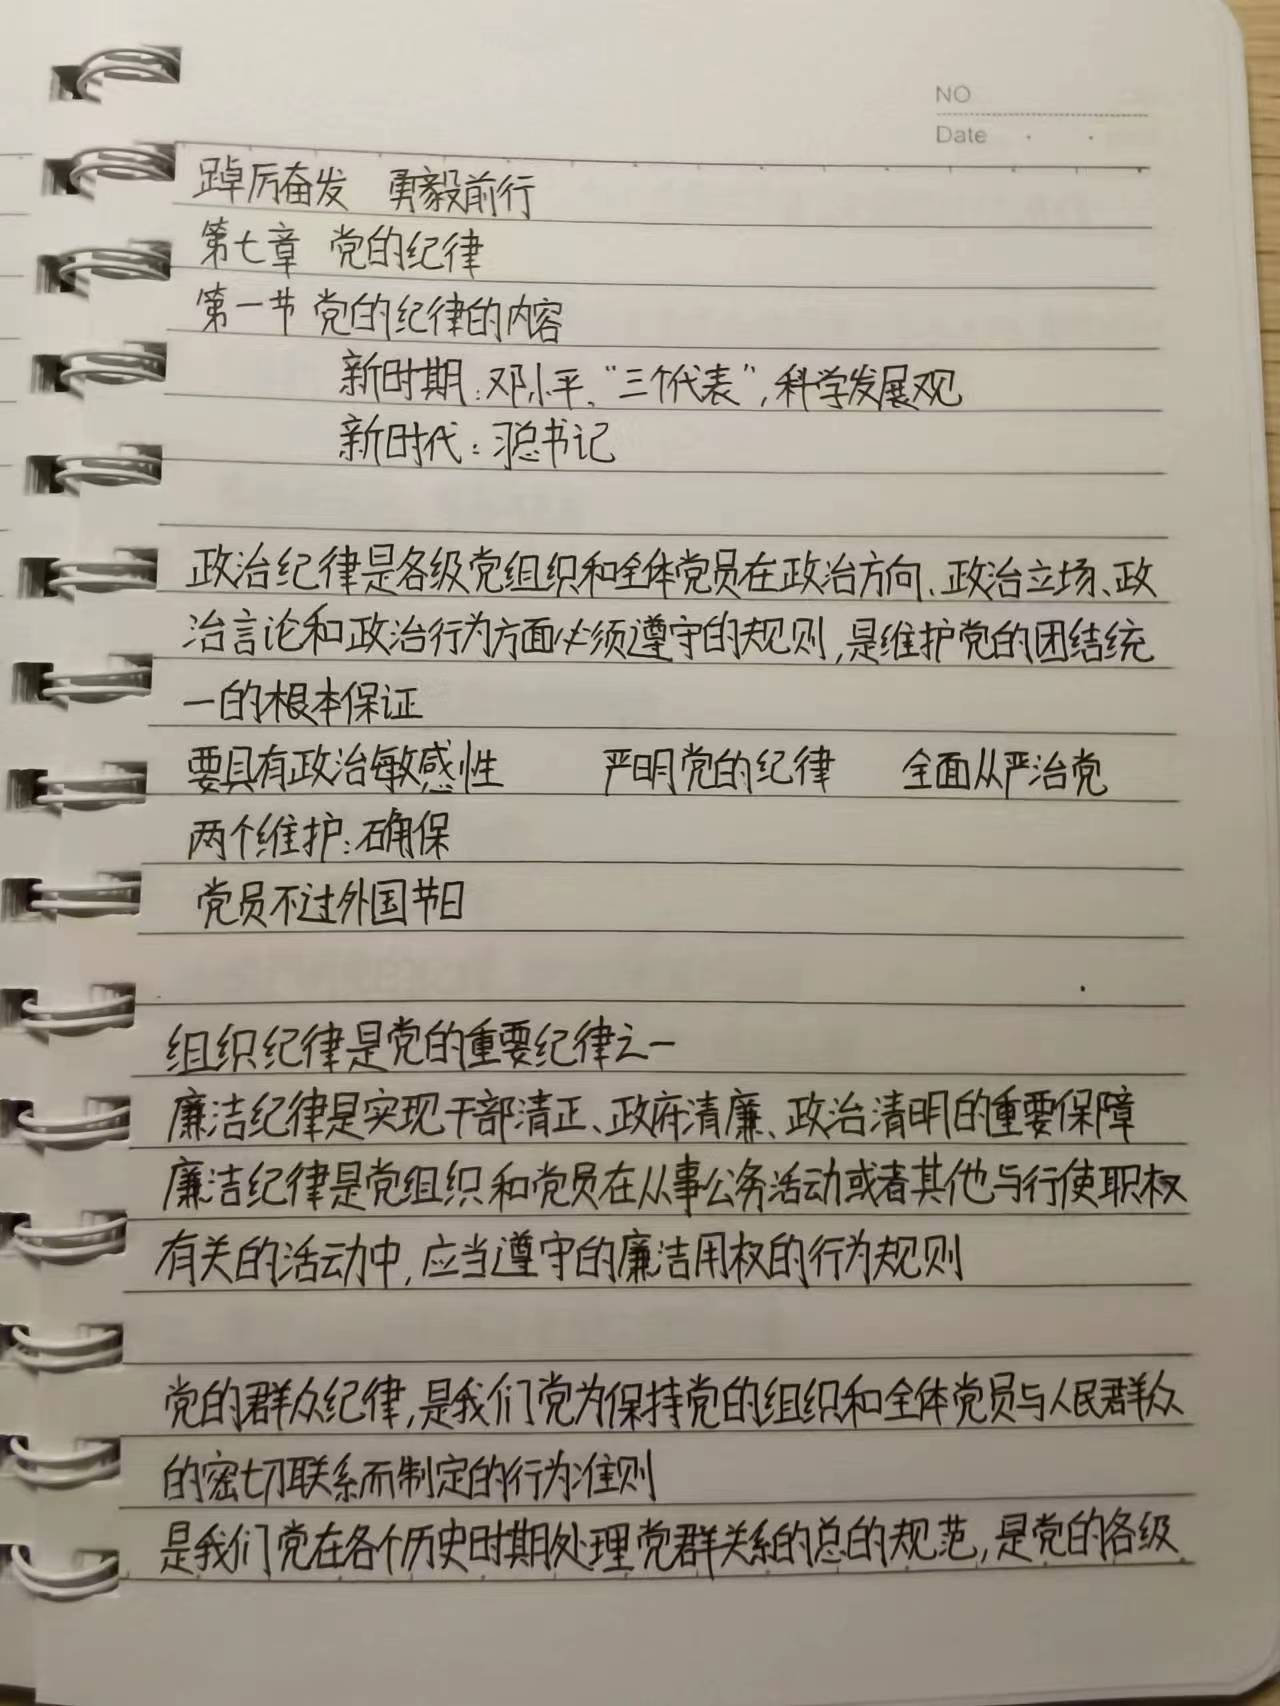 NO
Date
踔厉奋发 勇毅前行
第七章 党的纪律
第一节 党的纪律的内容
新时期：邓小平、“三个代表”，科学发展观
新时代：习总书记
政治纪律是各级党组织和全体党员在政治方向、政治立场、政
治言论和政治行为方面必须遵守的规则，是维护党的团结统
一的根本保证
要具有政治敏感性 严明党的纪律 全面从严治党
两个维护：确保
党员不过外国节日
组织纪律是党的重要纪律之一
廉洁纪律是实现干部清正、政府清廉、政治清明的重要保障
廉洁纪律是党组织和党员在从事公务活动或者其他与行使职权
有关的活动中，应当遵守的廉洁用权的行为规则
党的群众纪律，是我们党为保持党的组织和全体党员与人民群众
的密切联系而制定的行为准则
是我们党在各个历史时期处理党群关系的总的规范，是党的各级